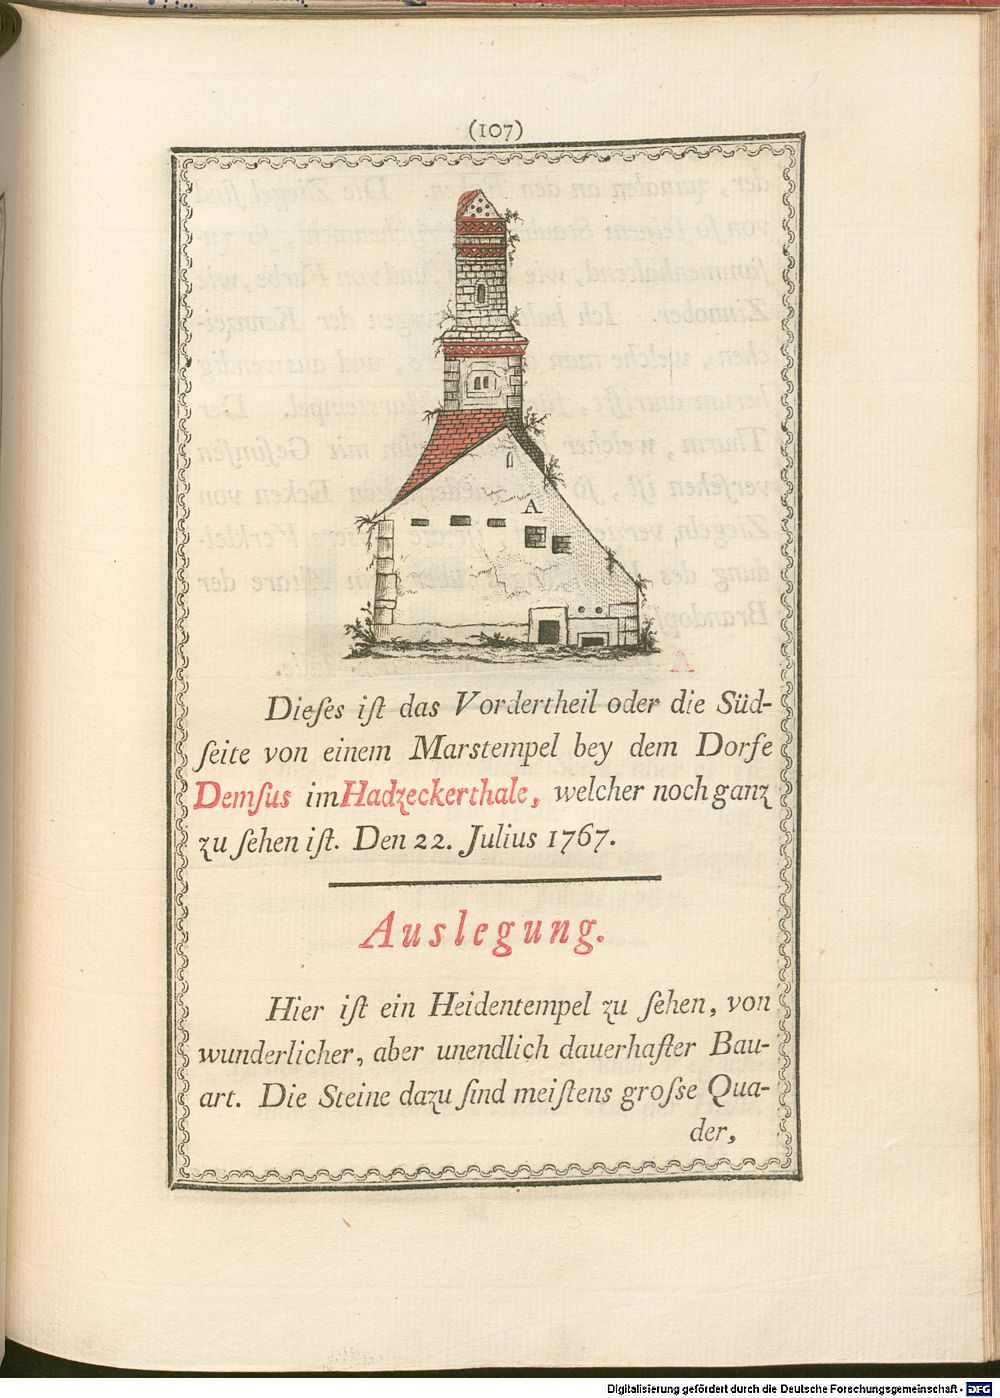 (107)
A
Dieſes iſt das Vordertheil oder die Süd-
ſeite von einem Marstempel bey dem Dorfe
Demſus im Hadzeckerthale, welcher noch ganz
zu ſehen iſt. Den 22. Julius 1767.
Auslegung.
Hier iſt ein Heidentempel zu ſehen, von
wunderlicher, aber unendlich dauerhafter Bau-
art. Die Steine dazu ſind meiſtens groſse Qua-
der,
Digitalisierung gefördert durch die Deutsche Forschungsgemeinschaft - DFG